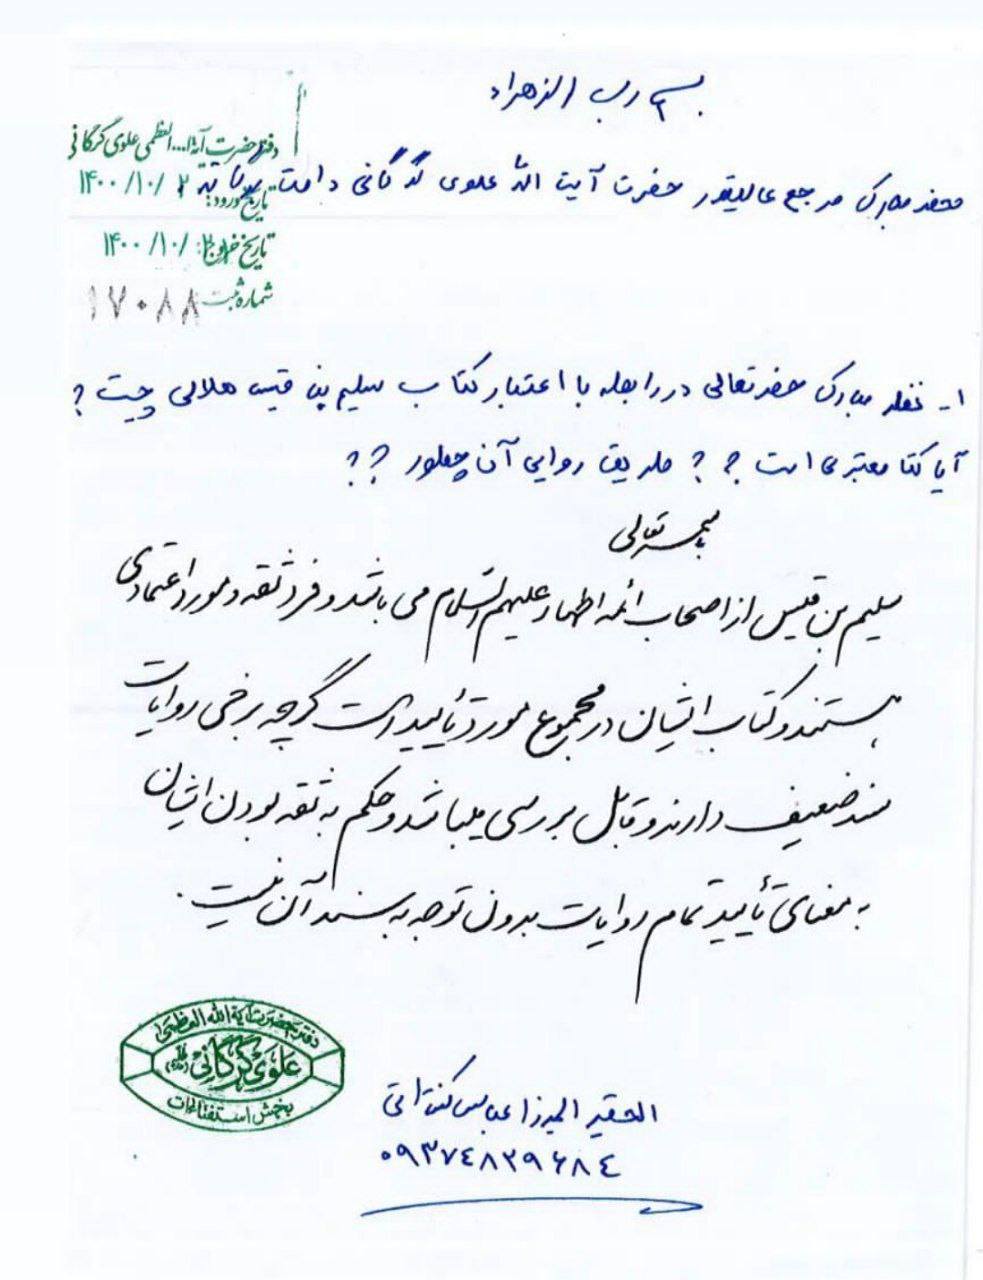 بسم رب الزهراء
دفتر حضرت آیةا... العظمی علوی گرگانی
محضر مبارک مرجع عالیقدر حضرت آیت الله علوی گرگانی دامت برکاته
تاریخ ورود: ۲ /۱۴۰۰/۱۰
تاریخ خروج: /۱۴۰۰/۱۰
شماره ثبت ۱۷۰۸۸
۱- نظر مبارک حضرتعالی در رابطه با اعتبار کتاب سلیم بن قیس هلالی چیست ؟
آیا کتاب معتبری است ؟ ؟ طریق روایی آن چطور ؟ ؟
باسمه تعالی
سلیم بن قیس از اصحاب ائمه اطهار علیهم السلام می باشد و فرد ثقه و مورد اعتمادی
هستند و کتاب ایشان در مجموع مورد تأیید است گرچه برخی روایات
سند ضعیف دارند و قابل بررسی میباشد و حکم به ثقه بودن ایشان
به معنای تأیید تمام روایات بدون توجه به سند آن نیست.
دفتر حضرت آیة الله العظمی
علوی گرگانی
بخش استفتائات
الحقیر المیرزا عباس
۰۹۳۷۴۸۲۹۶۸۴